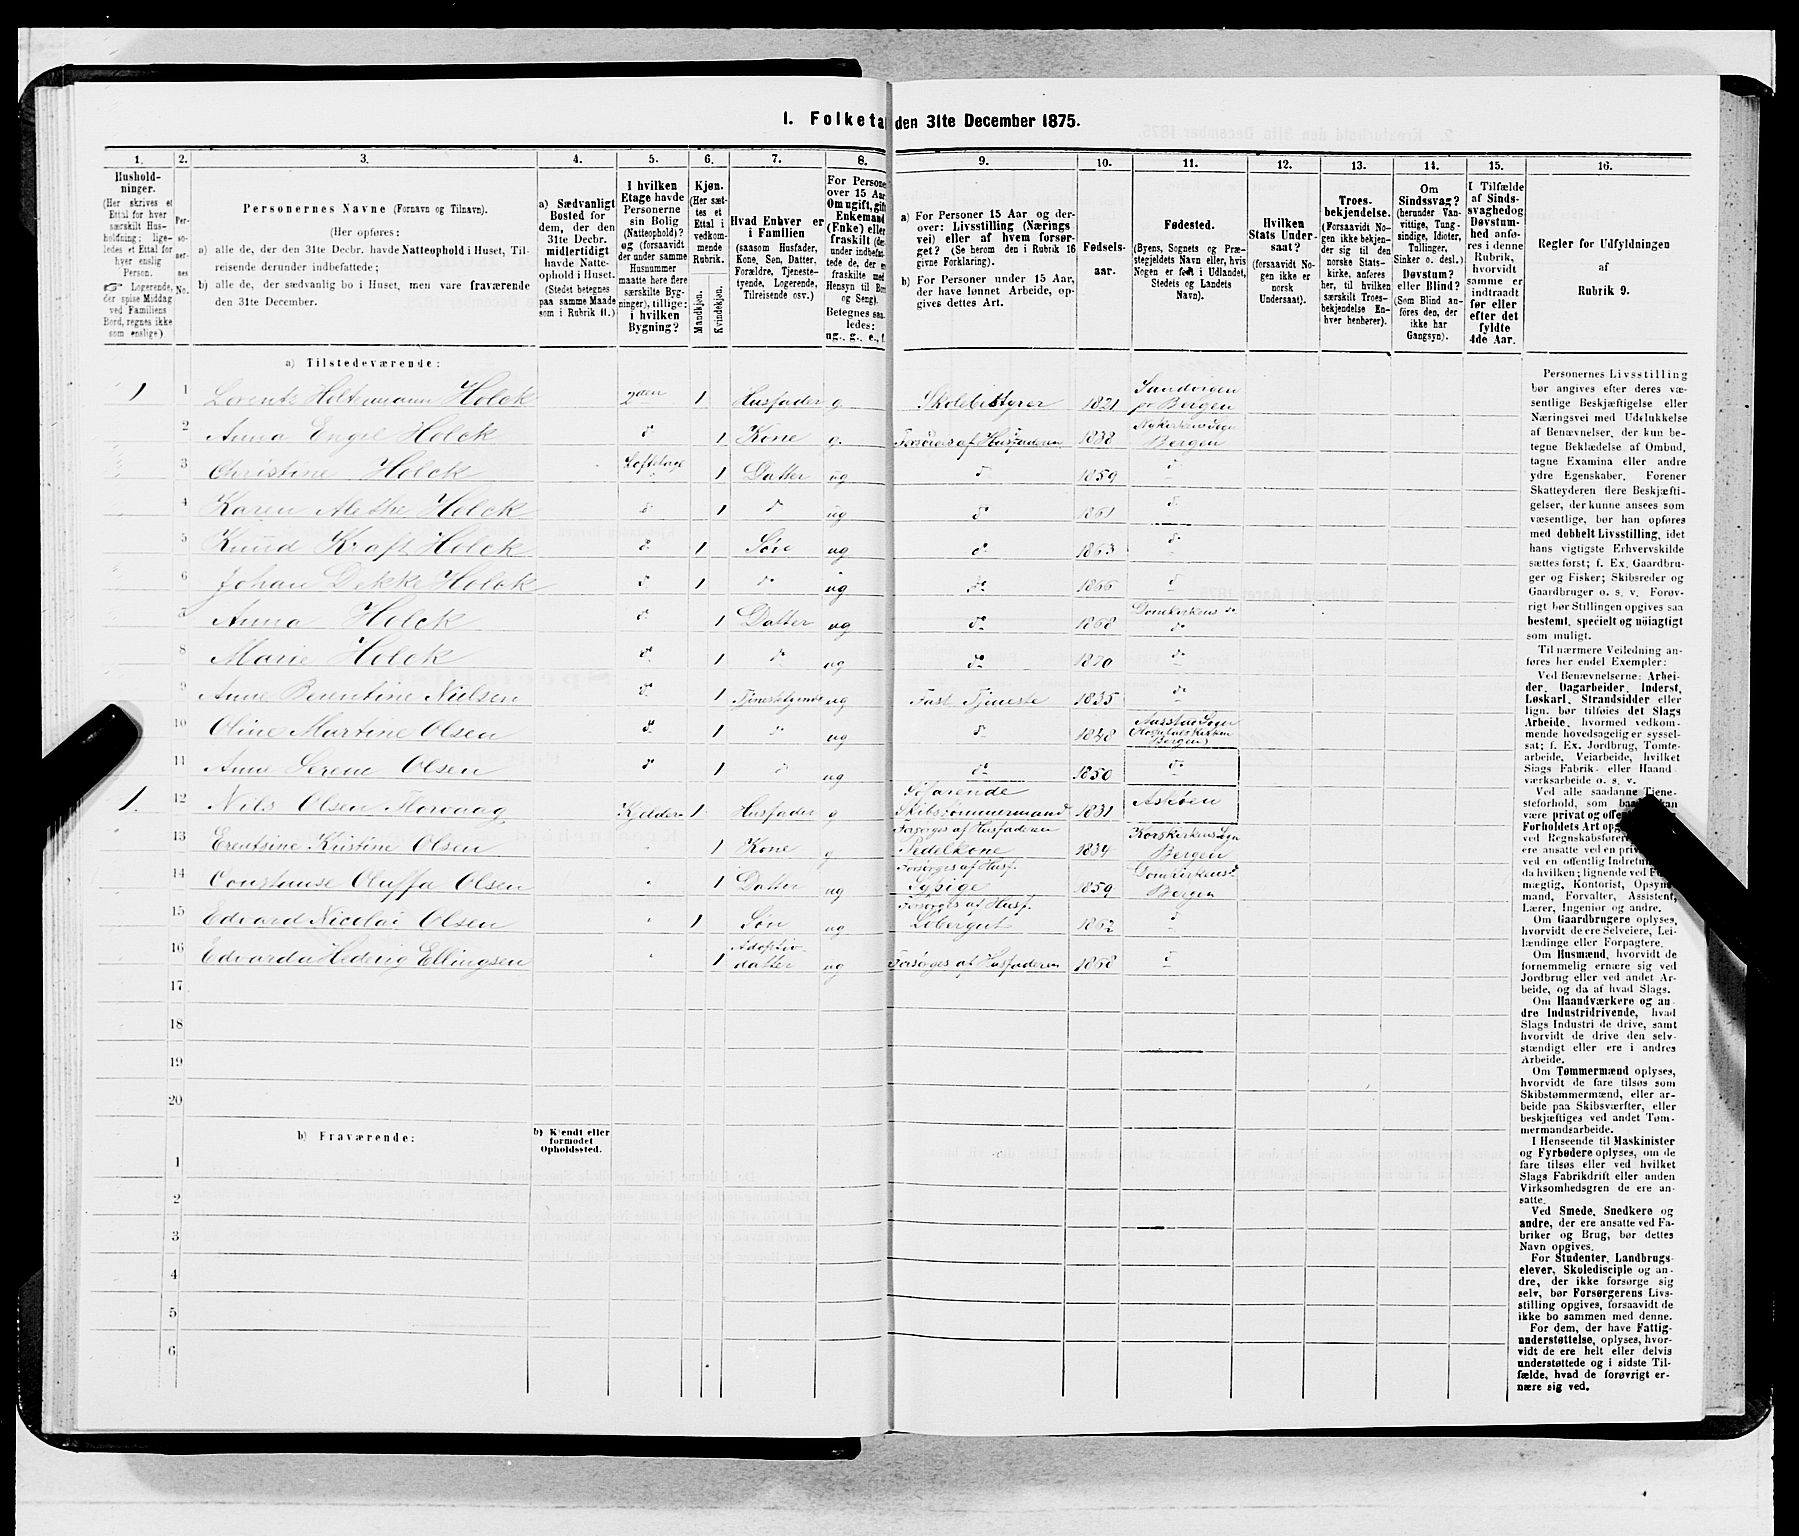 I. Folketal den 31te December 1875.
1. 2. 3. 4. 5. 6. 7. 8. 9. 10. 11. 12. 13. 14. 15. 16.
Hushold-
ninger.
(Her skrives et
Ettal for hver
særskilt Hus-
holdning; lige-
ledes et Ettal for
hver enslig
Person.
☞ Logerende,
der spise Middag
ved Familiens
Bord, regnes ikke
som enslige.)
Per-
so-
ner-
nes
No.
Personernes Navne (Fornavn og Tilnavn).
(Her opføres:
a) alle de, der den 31te Decbr. havde Natteophold i Huset, Til-
reisende derunder indbefattede;
b) alle de, der sædvanlig bo i Huset, men vare fraværende
den 31te December.
a) Sædvanligt
Bosted for
dem, der den
31te Decbr.
midlertidigt
havde Natte-
ophold i Huset.
(Stedet betegnes
paa samme Maade
som i Rubrik 11.)
I hvilken
Etage havde
Personerne
sin Bolig
(Natteophold)?
og (forsaavidt
der under samme
Husnummer
maatte høre flere
særskilte Byg-
ninger), tillige:
i hvilken
Bygning?
Kjøn.
(Her sæt-
tes et
Ettal i
vedkom-
mende
Rubrik.
Mandkjøn.
Kvindekjøn.
Hvad Enhver er
i Familien
(saasom Husfader,
Kone, Søn, Datter,
Forældre, Tjeneste-
tyende, Logerende,
Tilreisende osv.)
For Persone
over 15 Aar
Om ugift, gift
Enkemand
(Enke) eller
fraskilt (de
under indbefat
tede de, der er
fraskilte med
Hensyn til Bor
og Seng).
Betegnes saa-
ledes:
ug., g., e., f.
a) For Personer 15 Aar og der-
over: Livsstilling (Nærings
vei) eller af hvem forsør-
get? (Se herom den i Rubrik 16
givne Forklaring).
b) For Personer under 15 Aar,
der have lønnet Arbeide, op-
gives dettes Art.
Fødsels-
aar.
Fødested.
(Byens, Sognets og Præ-
stegjeldets Navn eller, hvis
Nogen er født i Udlandet,
Stedets og Landets
Navn).
Hvilken
Stats Under-
saat?
(forsaavidt No-
gen ikke er
norsk
Undersaat).
Troes-
bekjendelse.
(Forsaavidt No-
gen ikke bekjen-
der sig til den
norske Stats-
kirke, anføres
her, til hvilken
særskilt Troes-
bekjendelse En-
hver henhører).
Om
Sindssvag?
(herunder Van-
vittige, Tung-
sindige, Idioter,
Tullinger,
Sinker o. desl.)
Døvstum?
eller Blind?
(Som Blind an-
føres den, der
ikke har
Gangsyn).
I Tilfælde
af Sinds-
svaghed og
Døvstum-
hed anfø-
res i denne
Rubrik,
hvorvidt
samme er
indtraadt
før eller
efter det
fyldte
4de Aar.
Regler for Udfyldningen
af
Rubrik 9.
a) Tilstedeværende:
1 1 Lorentz Holtermann Holck 2den 1 Husfader g Skolebestyrer 1821 Sandvigen pr Bergen
2 Anna Engel Holck do 1 Kone g. Forsørges af Husfaderen 1838 Nykirkens Sogn Bergen
3 Christine Holck Loftetage do 1 Datter ug do 1859 do
4 Karen Alethe Holck do 1 do ug do 1861 do
5 Knud Kraft Holck do 1 Søn ug do 1863 do
6 Johan Dekke Holck do 1 do ug do 1866 do
7 Anna Holck do 1 Datter ug do 1868 Domkirkens do do
8 Marie Holck do 1 do ug do 1870 do
9 Anne Berentine Nielsen do 1 Tjenestetyende ug Fast Tjeneste 1835 do
10 Oline Martine Olsen do 1 do ug do 1848 Aarstad Sogn (Hospitalskirken Bergen)
11 Anne Serene Olsen do 1 do ug do 1850 do
1. 12 Nils Olsen Florvaag Kjelder 1 Husfader g Søfarende Skibstømmermand 1831 Askøen
13 Erentsine Kristine Olsen " 1 Kone g Forsørges af Husfaderen 1834 Korskirkens Sogn Bergen
14 Constanse Oluffa Olsen " 1 Datter ug Forsørges af Husf. Sypige 1859 Domkirkens do Bergen
15 Edvard Nicolai Olsen " 1 Søn ug Forsørges af Husf. Løbergut 1862 do
16 Edvarda Hedevig Ellingsen " 1 Adoptiv- datter ug Forsørges af Husfaderen 1868 do
17
18
19
20
b) Fraværende:
b) Kjendt eller
formodet
Opholdssted.
1
2
3
4
5
6
Personernes Livsstilling
bør angives efter deres væ-
sentlige Beskjæftigelse eller
Næringsvei med Udelukkelse
af Benævnelser, der kun be-
tegne Beklædelse af Ombud,
tagne Examina eller andre
ydre Egenskaber. Forener
Skatteyderen flere Beskjæfti-
gelser, der kunne ansees som
væsentlige, bør han opføres
med dobbelt Livsstilling, idet
hans vigtigste Erhvervskilde
sættes først; f. Ex. Gaardbru-
ger og Fisker; Skibsreder og
Gaardbruger o. s. v. Forøv-
rigt bør Stillingen opgives saa
bestemt, specielt og nöiagtigt
som muligt.
Til nærmere Veiledning an-
føres her endel Exempler:
Ved Benævnelserne: Arbei-
der, Dagarbeider, Inderst,
Løskarl, Strandsidder eller
lign. bør tilføies det Slags
Arbeide, hvormed vedkom-
mende hovedsagelig er syssel-
sat; f. Ex. Jordbrug, Tomte-
arbeide, Veiarbeide, hvilket
Slags Fabrik- eller Haand
værksarbeide o. s. v.
Ved alle saadanne Tjene-
steforhold, som baade kan
være privat og offe
Forholdets Art op
ved Regnskabsføre
ere ansatte ved en priv
ved en offentlig Indretn
da hvilken; lignende ved F
mægtig, Kontorist, Opsyns
mand, Forvalter, Assistent,
Lærer, Ingeniør og andre.
Om Gaardbrugere oplyses,
hvorvidt de ere Selveiere, Lei-
lændinge eller Forpagtere.
Om Husmænd, hvorvidt de
fornemmelig ernære sig ved
Jordbrug eller ved andet Ar-
beide, og da af hvad Slags.
Om Haandværkere og an-
dre Industridrivende, hvad
Slags Industri de drive, samt
hvorvidt de drive den selv-
stændigt eller ere i andres
Arbeide.
Om Tømmermænd oplyses,
hvorvidt de fare tilsøs som
Skibstømmermænd, eller ar-
beide paa Skibsværfter, eller
beskjæftiges ved andet Tøm-
mermandsarbeide.
I Henseende til Maskinister
og Fyrbødere oplyses, om de
fare tilsøs eller ved hvilket
Slags Fabrikdrift eller anden
Virksomhedsgren de ere an-
satte.
Ved Smede, Snedkere og
andre, der ere ansatte ved Fa-
briker og Brug, bør dettes
Navn opgives.
For Studenter, Landbrugs-
elever, Skoledisciple og an-
dre, der ikke forsørge sig
selv, bør Forsørgerens Livs-
stilling opgives, forsaavidt de
ikke bo sammen med denne.
For dem, der have Fattig-
understøttelse, oplyses, hvor-
vidt de ere helt eller delvis
understøttede og i sidste Til-
fælde, hvad de forøvrigt er-
nære sig ved.